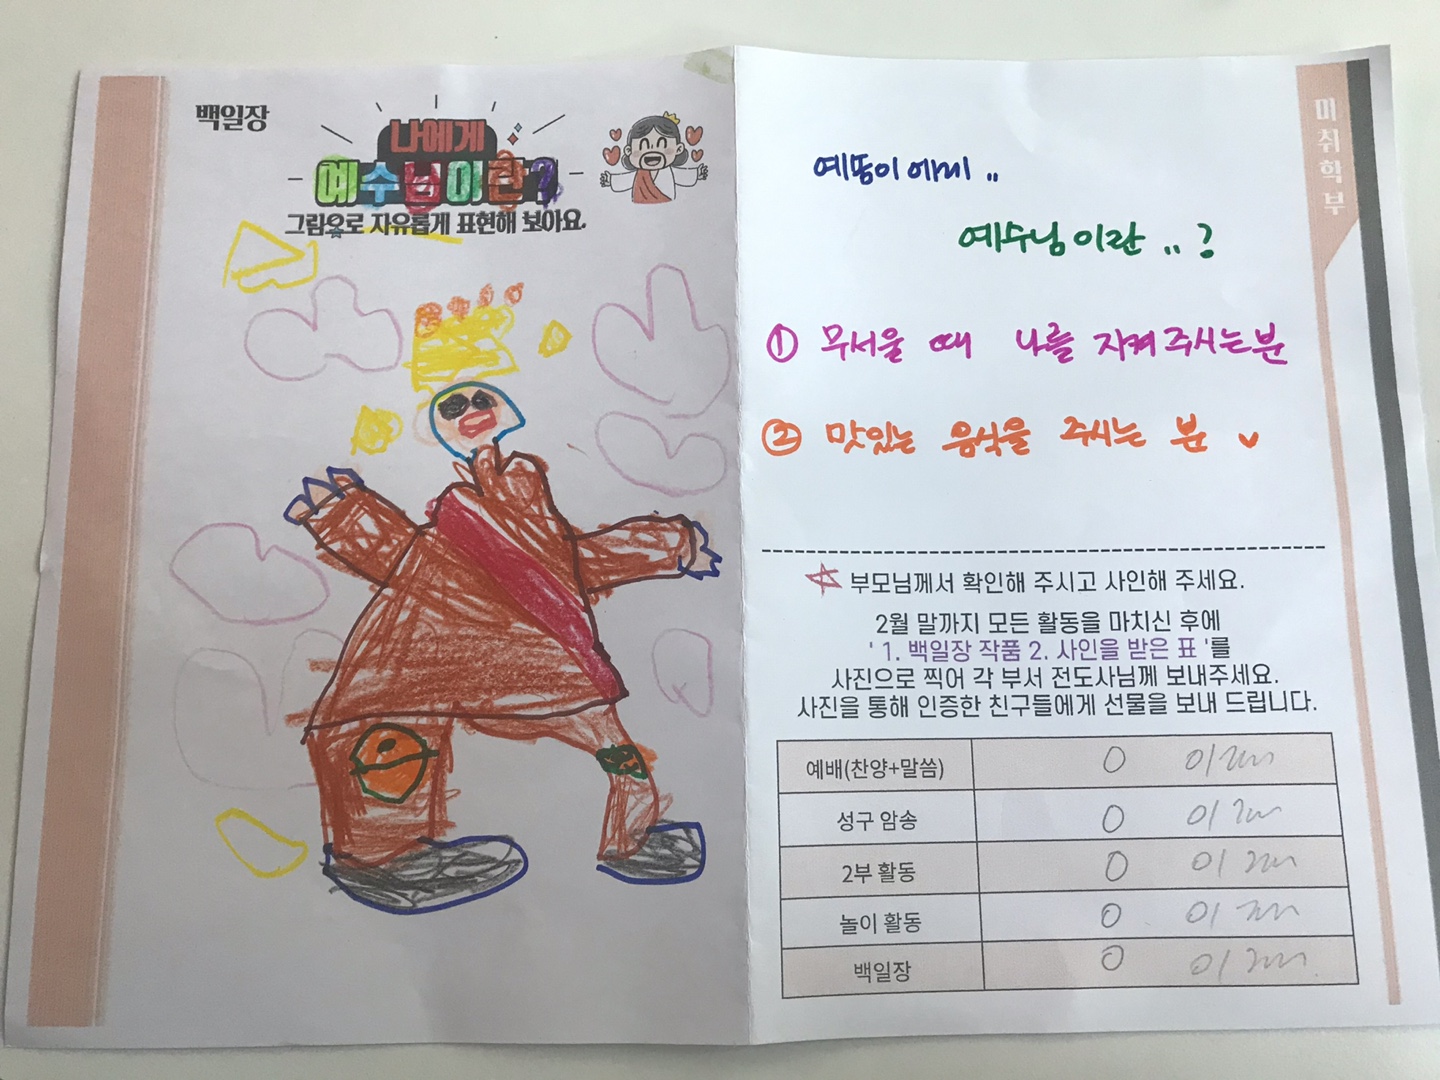 백일장
나에게
예수님이란?
그림으로 자유롭게 표현해 보아요.
미취학부
예똥이에게..
예수님이란..?
① 무서울 때 나를 지켜주시는분
② 맛있는 음식을 주시는 분
부모님께서 확인해 주시고 사인해 주세요.
2월 말까지 모든 활동을 마치신 후에
' 1. 백일장 작품 2. 사인을 받은 표 '를
사진으로 찍어 각 부서 전도사님께 보내주세요.
사진을 통해 인증한 친구들에게 선물을 보내 드립니다.
예배(찬양+말씀) O
성구 암송 O
2부 활동 O
놀이 활동 O
백일장 O